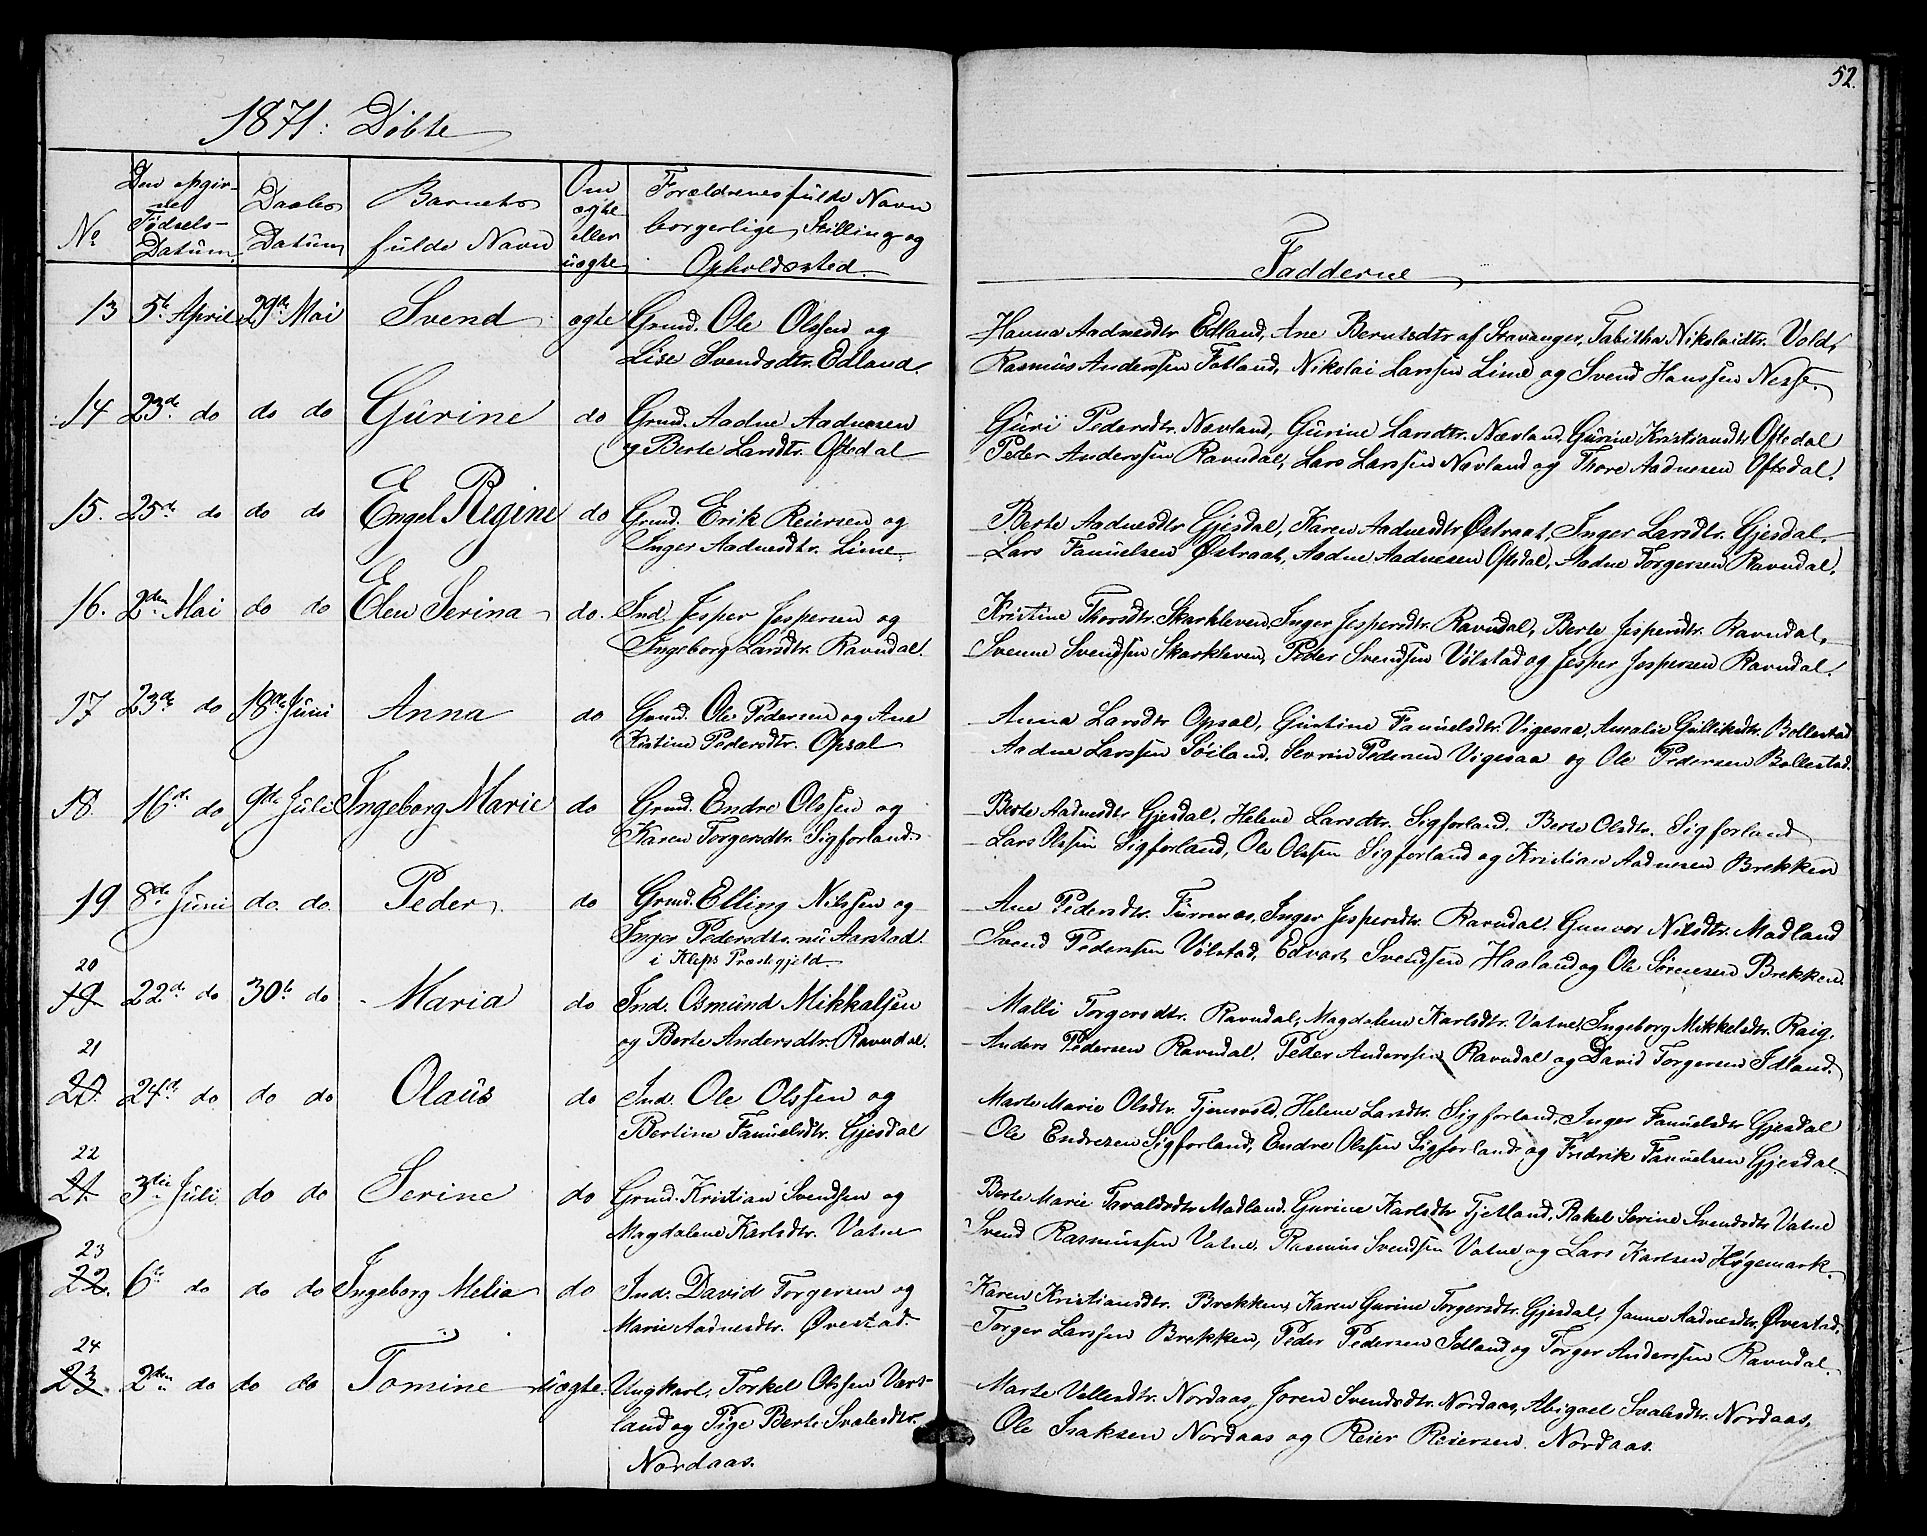 52.
1871. Döbte
No
Den opgivne Födsels-Datum.
Daabs Datum
Barnets fulde Navn
Om ægte eller uægte
Forældrenes fulde Navn borgerlige Stilling og Opholdssted.
Fadderne
13 5te April 29de Mai Svend ægte Grmd. Ole Olssen og
Lise Svendsdtr. Edland.
Hanna Aadnesdtr Edland, Ane Berntsdtr af Stavanger, Tabitha Nikolaidtr. Vold,
Rasmus Anderssen Fotland, Nikolai Larssen Lime og Svend Hanssen Nesse.
14 23de do do do Gurine do Grmd. Aadne Aadnesen
og Berte Larsdtr. Oftedal
Guri Pedersdtr. Nævland, Gurine Larsdtr. Nævland, Gurine Kristiansdtr Oftedal
Peder Anderssen Ravndal, Lars Larssen Nævland og Thore Aadnesen Oftedal.
15. 25de do do do Engel Regine do Grmd. Erik Reiersen og
Inger Aadnesdtr. Lime.
Berte Aadnesdtr Gjesdal, Karen Aadnesdtr Østraat, Inger Larsdtr. Gjesdal.
Lars Fanuelsen Østraat, Aadne Aadnesen Oftedal, Aadne Torgersen Ravndal.
16. 2den Mai do do Elen Serina do. Ind. Jesper Jespersen og
Ingeborg Larsdtr. Ravndal.
Kristine Thorsdtr. Skarkleven, Inger Jespersdtr. Ravndal, Berte Jespersdtr. Ravndal,
Svenne Svendsen Skarkleven, Peder Svendsen Völstad og Jesper Jespersen Ravndal.
17 23de do 18de Juni Anna do Grmd. Ole Pedersen og Ane
Kistine Pedersdtr. Opsal
Anna Larsdtr Opsal, Gurtine Fanuelsdtr Vigesaa, Amalie Gullikdtr. Bollestad
Aadne Larssen Söiland, Sevrin Pedersen Vigesaa og Ole Pedersen Bollestad.
18. 16de do 9de Juli Ingeborg Marie do Grmd. Endre Olssen og
Karen Torgersdtr. Sigforland.
Berte Aadnesdtr Gjesdal, Helene Larsdtr. Sigforland. Berte Olsdtr. Sigforland
Lars Olssen Sigforland, Ole Olssen Sigforland og Kristian Aadnesen Brekken
19 8de Juni do. do. Peder. do Grmd. Elling Nilssen og
Inger Pedersdtr. nu Aarstad.
i Kleps Præstegjeld.
Ane Pedersdtr. Furrenes, Inger Jespersdtr. Ravndal. Gunvor Nilsdtr. Madland
Svend Pedersen Völstad, Edvart Svendsen Haaland og Ole Sörensen Brekken.
20
19 22de do 30te do Maria do Ind. Osmund Mikkalsen
og Berte Andersdtr. Ravndal.
Malli Torgersdtr. Ravndal, Magdalene Karlsdtr. Vatne, Ingeborg Mikkelsdtr. Raig.
Anders Pedersen Ravndal. Peder Anderssen Ravndal og David Torgersen Idland.
21
20. 24de do do do Olaus do Ind. Ole Olssen og
Bertine Fanuelsdtr. Gjesdal
Marte Marie Olsdtr. Tjensvold, Helene Larsdtr. Sigforland, Inger Fanuelsdtr Gjesdal
Ole Endresen Sigforland, Endre Olssen Sigforland og Fredrik Fanuelsen Gjesdal
22
21. 3die Juli do do Serine do Grmd. Kristian Svendsen og
Magdalene Karlsdtr. Vatne
Berte Marie Tavaldsdtr Madland. Gurine Karlsdtr Tjetland, Rakel Serine Svendsdtr Vatne
Svend Rasmussen Vatne, Rasmus Svendsen Vatne og Lars Karlsen Høgemark.
23
22. 6te do do do Ingeborg Melia do Ind. David Torgersen og
Marie Aadnesdtr. Øvestad.
Karen Kristiansdtr. Brekken, Karen Gurine Torgersdtr. Gjesdal, Janne Aadnesdtr. Øvestad,
Torger Larssen Brekken, Peder Pedersen Idland og Torger Anderssen Ravndal.
24
23. 2den do do do Tomine uægte. Ungkarl. Torkel Olssen Vars-
land og Pige Berte Svalesdtr.
Nordaas.
Marte Vellesdtr. Nordaas, Joren Svendsdtr. Nordaas, Abigael Svalesdtr. Nordaas,
Ole Isaksen Nordaas og Reier Reiersen. Nordaas.